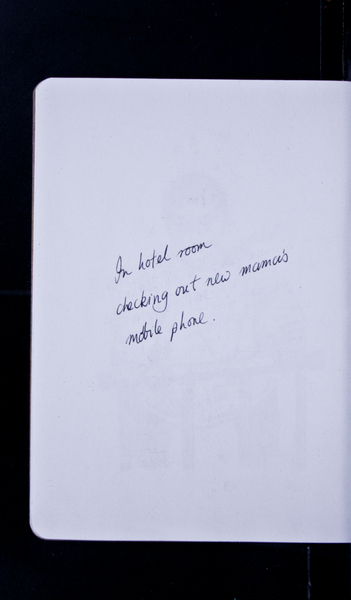 In hotel room
checking out new mama's
mobile phone.